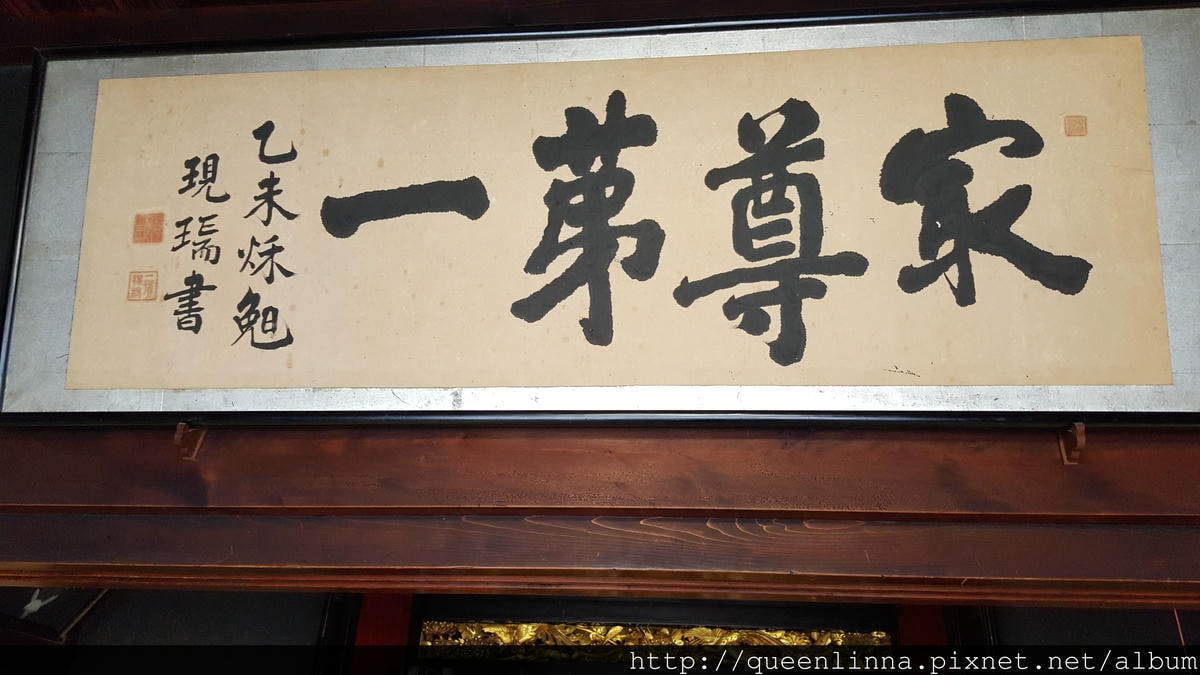 家尊苐一
乙未秌勉
現瑞書
http://queenlinna.pixnet.net/album